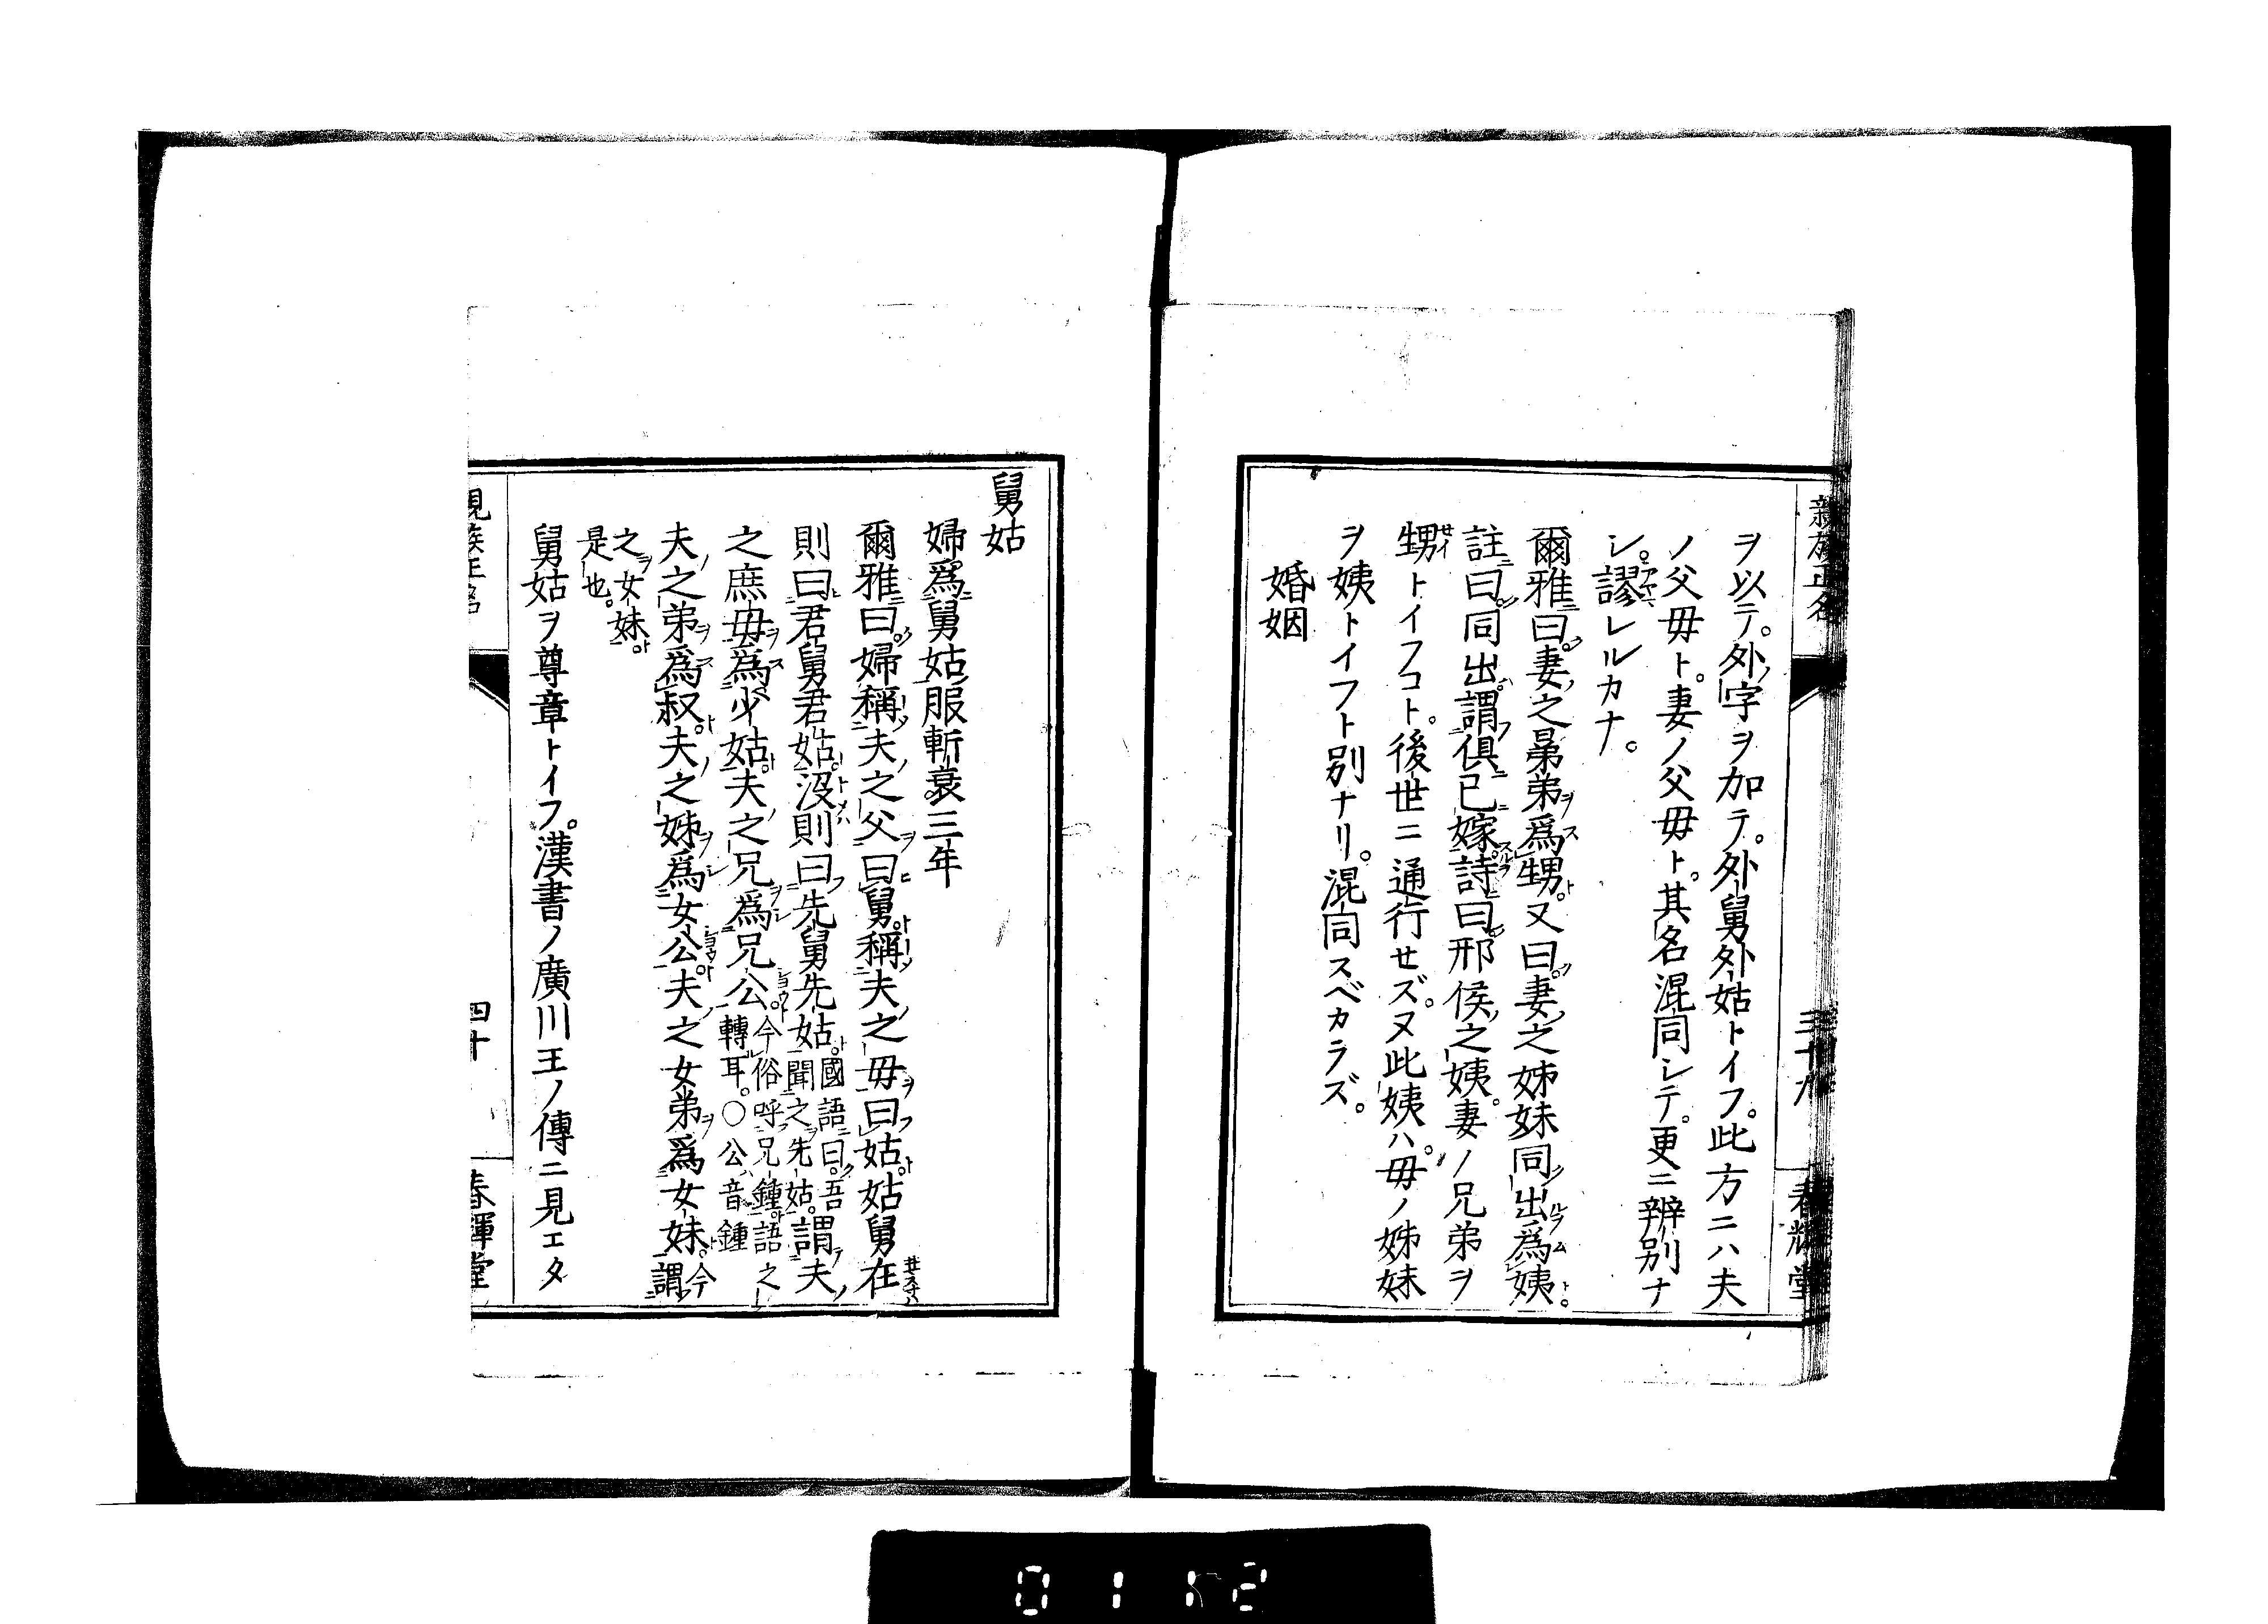 親族正名 三十九 春輝堂
ヲ以テ。外ノ字ヲ加テ。外舅外姑トイフ。此方ニハ夫
ノ父毋ト。妻ノ父毋ト。其名混同シテ。更ニ辨別ナ
シ。謬レルカナ。
爾雅曰。妻之晜弟爲甥。又曰。妻之姊妹同出爲姨。
註曰。同出。謂俱已嫁。詩曰。邢侯之姨。妻ノ兄弟ヲ
甥トイフコト。後世ニ通行セズ。又此姨ハ。毋ノ姊妹
ヲ姨トイフト別ナリ。混同スベカラズ。
婚姻
舅姑
婦爲舅姑服斬衰三年
爾雅曰。婦稱夫之父曰舅。稱夫之毋曰姑。姑舅在
則曰君舅君姑。沒則曰先舅先姑。國語曰。吾聞之先姑。謂夫
之庶毋爲少姑。夫之兄爲兄公。今俗呼兄鍾。語之轉耳。○公音鍾
夫之弟爲叔。夫之姊爲女公。夫之女弟爲女妹。今謂
之女妹
是也。
舅姑ヲ尊章トイフ。漢書ノ廣川王ノ傳ニ見エタ
親族正名 四十 春輝堂
0112